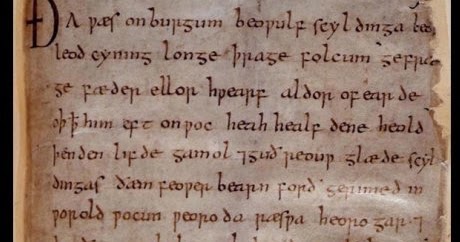 ÐA ƿæs on burgum beoƿulf scyldinga leo
leod cyning longe þrage folcum gefræ
ge fæder ellor hƿearf aldor of earde
oþ þ̄ him eft onƿoc heah healfdene heold
þenden lifde gamol ⁊ guð reouƿ glæde scyl
dingas ðæm feoƿer bearn forð gerimed in
ƿorold ƿocun ƿeoroda ræsƿa heorogar ⁊